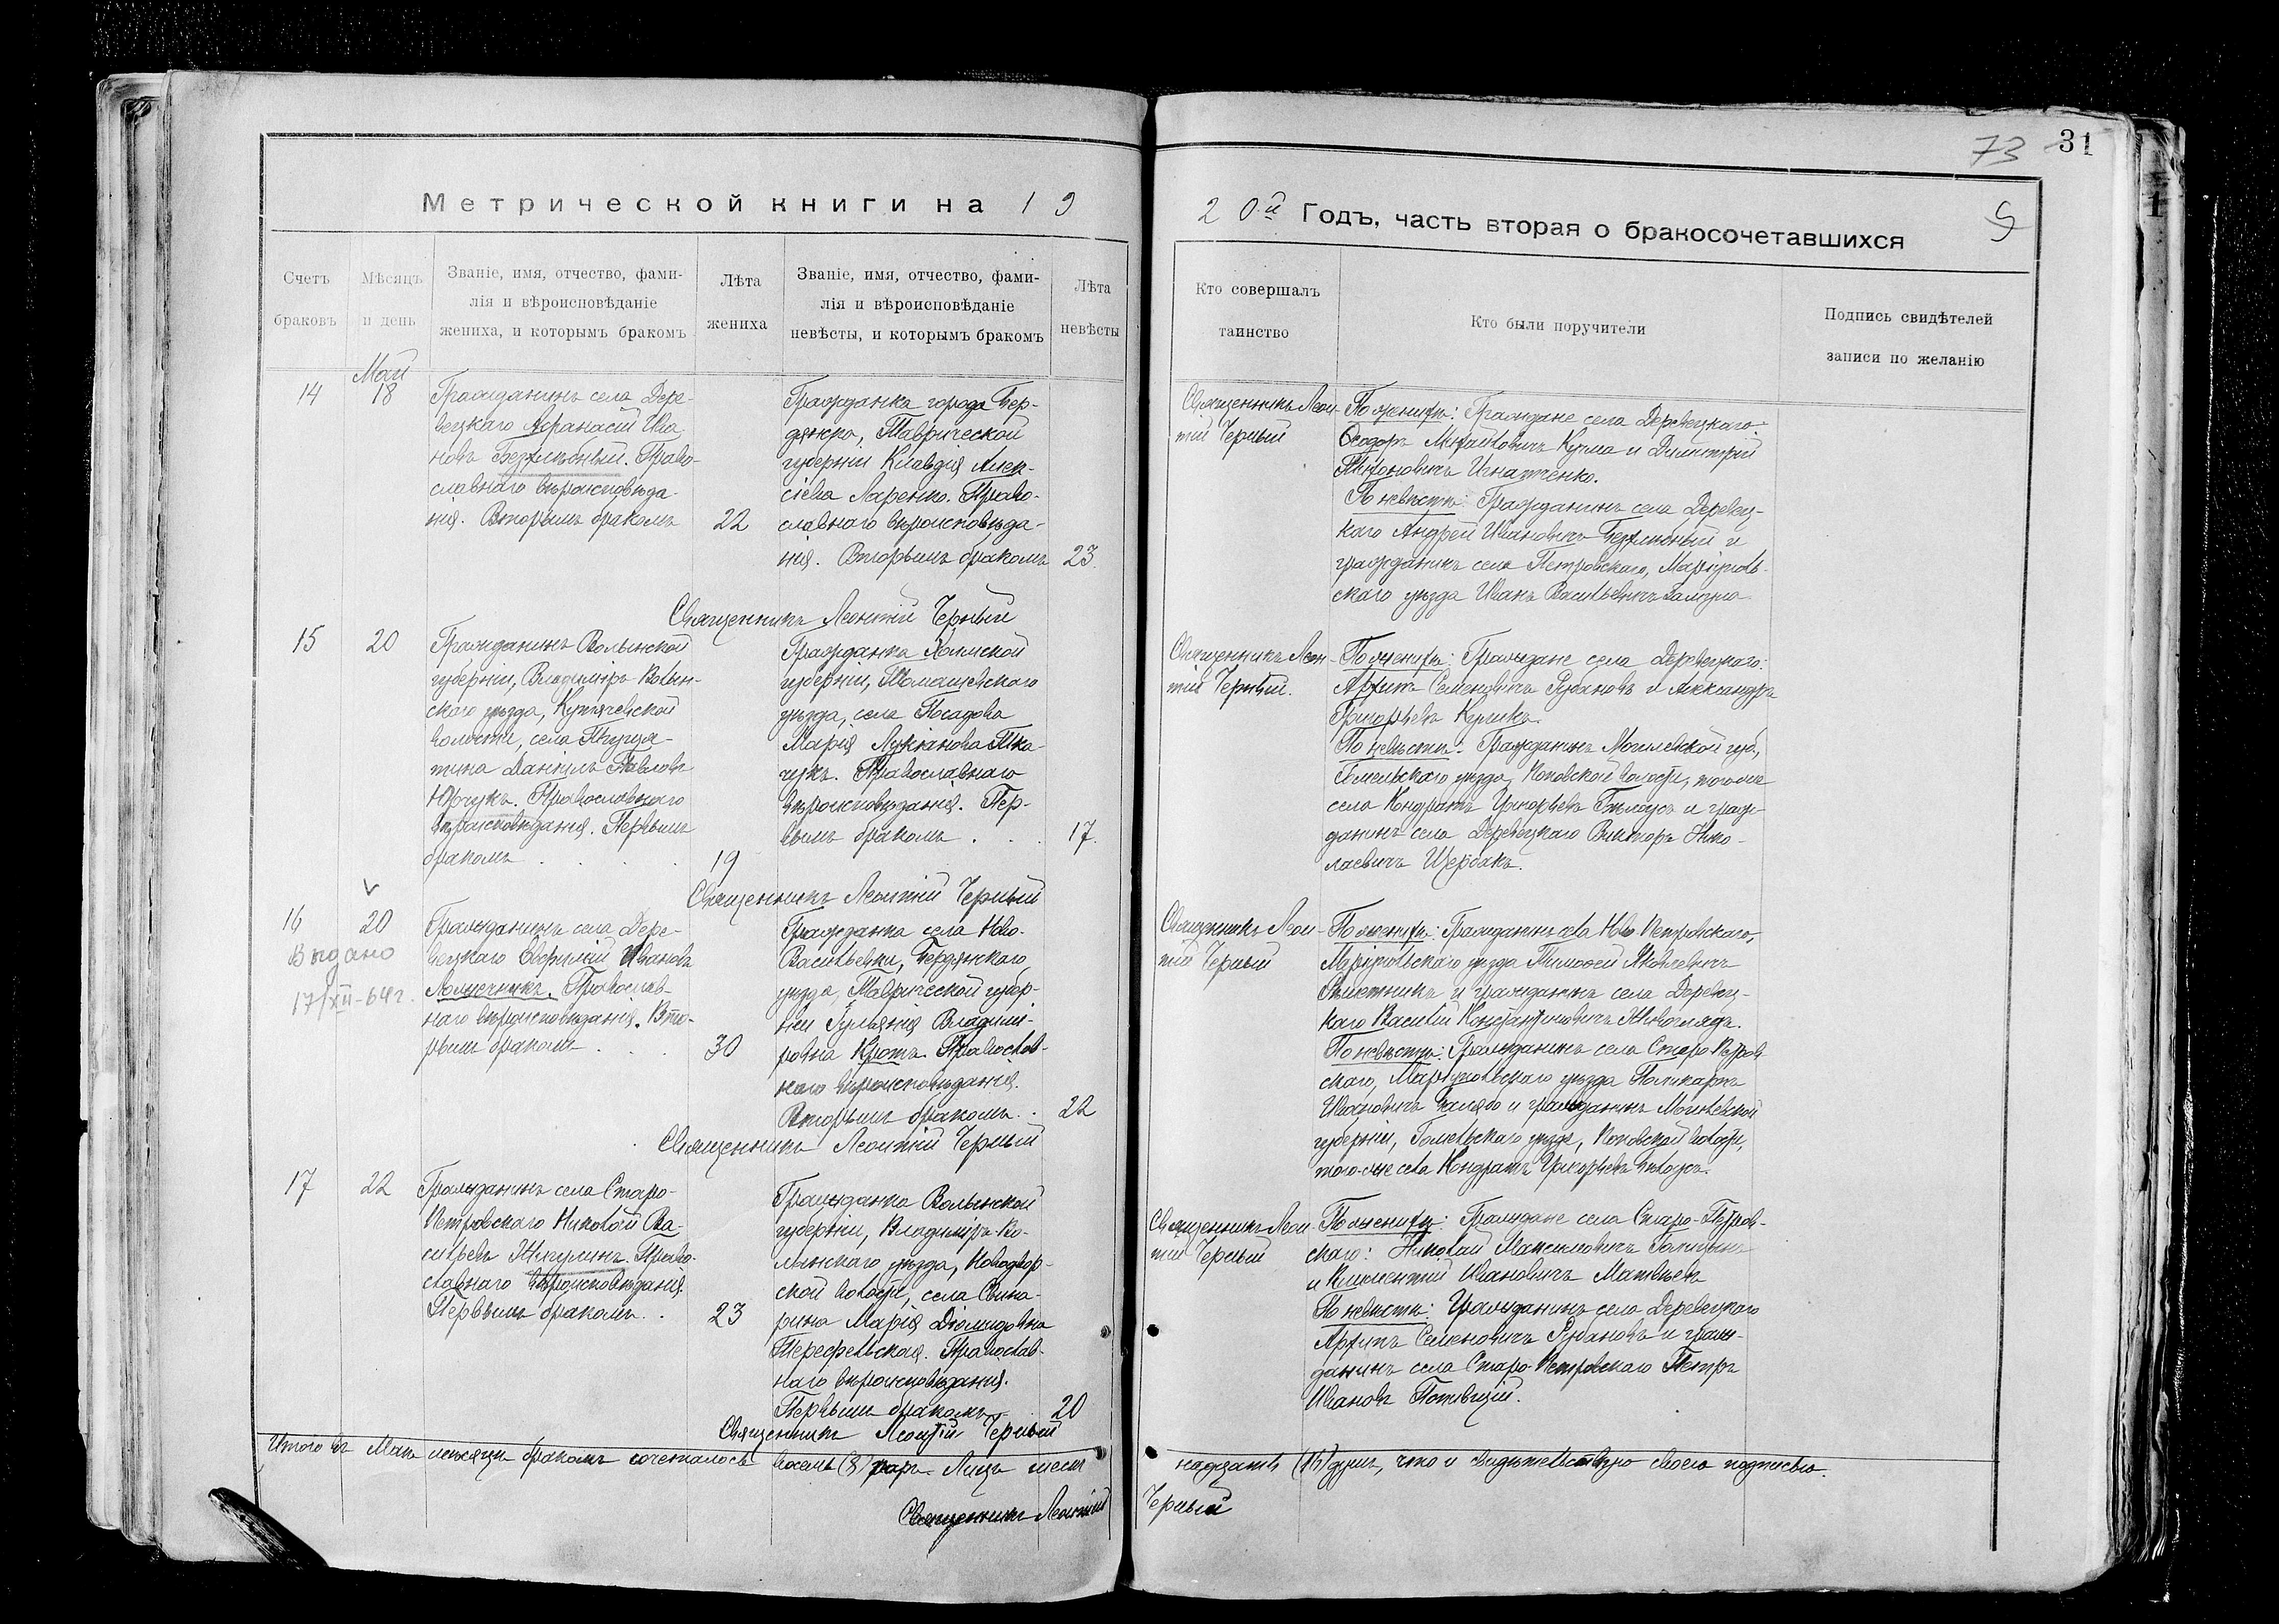 73 31
Метрической книги на 19
20й Годъ, часть вторая о бракосочетавшихся
9
Счетъ браковъ
Мѣсяцъ и день
Званіе, имя, отчество, фами-
лія и вѣроисповѣданіе
жениха, и которымъ бракомъ
Лѣта жениха
Званіе, имя, отчество, фами-
лія и вѣроисповѣданіе
невѣсты, и которымъ бракомъ
Лѣта невѣсты
Кто совершалъ таинство
Кто были поручители
Подпись свидѣтелей
записи по желанію
Май
14
18
Гражданинъ села Дере-
вецкаго Афанасій Ива
новъ Безхлѣбный. Право-
славнаго вѣроисповѣда-
нія. Вторымъ бракомъ
22
Гражданка города Бер-
дянска, Таврической
губерніи Клавдія Алек-
сіева Ларенко. Право-
славнаго вѣроисповѣда-
нія. Вторымъ бракомъ
23.
Священникъ Леон-
тій Черный
По женихѣ: Граждане села Деревецкаго:
Ѳеодоръ Михайловичъ Кучма и Димитрій
Тихоновичъ Игнатченко.
По невѣстѣ: Гражданинъ села Деревец-
каго Андрей Ивановичъ Безхлѣбный и
гражданинъ села Петровскаго, Маріуполь-
скаго уѣзда Иванъ Васильевичъ
Священникъ Леонтій Черный
15
20
Гражданинъ Волынской
губерніи, Владиміръ-Волын-
скаго уѣзда,
волости, села
Даніилъ Павловъ
Юрчукъ. Православнаго
вѣроисповѣданія. Первымъ
бракомъ . . . .
19
Гражданка Холмской
губерніи, Томашевскаго
уѣзда, села Посадова
Марія Лукіанова Тка-
чукъ. Православнаго
вѣроисповѣданія. Пер-
вымъ бракомъ . . .
17.
Священникъ Леон-
тій Черный.
По женихѣ: Граждане села Деревецкаго:
Архипъ Семеновичъ Рубановъ и Александръ
Григорьевъ Куликъ.
По невѣстѣ: Гражданинъ Могилевской губ,
Гомельскаго уѣзда, Поповской волости, того-же
села Кондратъ Григорьевъ Бѣлоусъ и граж-
данинъ села Деревецкаго Викторъ Нико-
лаевичъ Щербакъ.
Священникъ Леонтій Черный
16
20
Выдано
17/XII-64г.
Гражданинъ села Дере-
вецкаго Ефимій Ивановъ
Православ-
наго вѣроисповѣданія. Вто-
рымъ бракомъ . . .
30
Гражданка села Ново-
Васильевки, Бердянскаго
уѣзда, Таврической губер-
ніи Гуліянія Владими-
ровна Кротъ. Православ-
наго вѣроисповѣданія.
Вторымъ бракомъ . .
22
Священникъ Леон-
тій Черный
По женихѣ: Гражданинъ села Ново-Петровскаго,
Маріупольскаго уѣзда Тимоѳей Яковлевичъ
и гражданинъ села Деревец-
каго Василій Константиновичъ Живоглядъ.
По невѣстѣ: Гражданинъ села Старо-Петров
скаго, Маріупольскаго уѣзда Поликарпъ
Ивановичъ и гражданинъ Могилевской
губерніи, Гомельскаго уѣзда, Поповской волости,
того-же села Кондратъ Григорьевъ Бѣлоусъ.
Священникъ Леонтій Черный
17
22
Гражданинъ села Старо-
Петровскаго Николай Ва-
сильевъ Жигулинъ. Право-
славнаго вѣроисповѣданія.
Первымъ бракомъ . .
23
Гражданка Волынской
губерніи, Владиміръ-Во-
лынскаго уѣзда, Новодвор-
ской волости, села Свина-
рина Марія Діомидовна
Православ-
наго вѣроисповѣданія.
Первымъ бракомъ
20
Священникъ Леон-
тій Черный
По женихѣ: Граждане села Старо-Петров-
скаго: Николай Максимовичъ Голицынъ
и Климентій Ивановичъ Матвѣевъ
По невѣстѣ: Гражданинъ села Деревецкаго
Архипъ Семеновичъ Рубановъ и граж-
данинъ села Старо-Петровскаго Петръ
Ивановъ
Священникъ Леонтій Черный
Итого въ Маѣ мѣсяцѣ бракомъ сочеталось восемь (8) паръ. Лицъ шест
надцать (16) душъ, что и свидѣтельствую своею подписью.
Священникъ Леонтій Черный